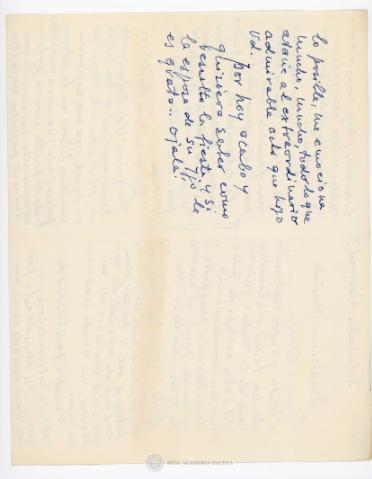 lo posible, me emociona
mucho, mucho, todo lo que
atañe al extraordinario
admirable acto que hizo
Vd.
por hoy acabo y
quisiera saber como
resultó la fiesta, y si
la esposa de su hijo le
es grata.. ojalá!
REAL ACADEMIA GALEGA